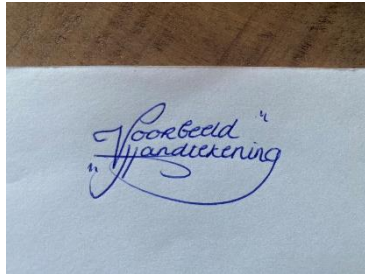 Voorbeeld "
" Handtekening